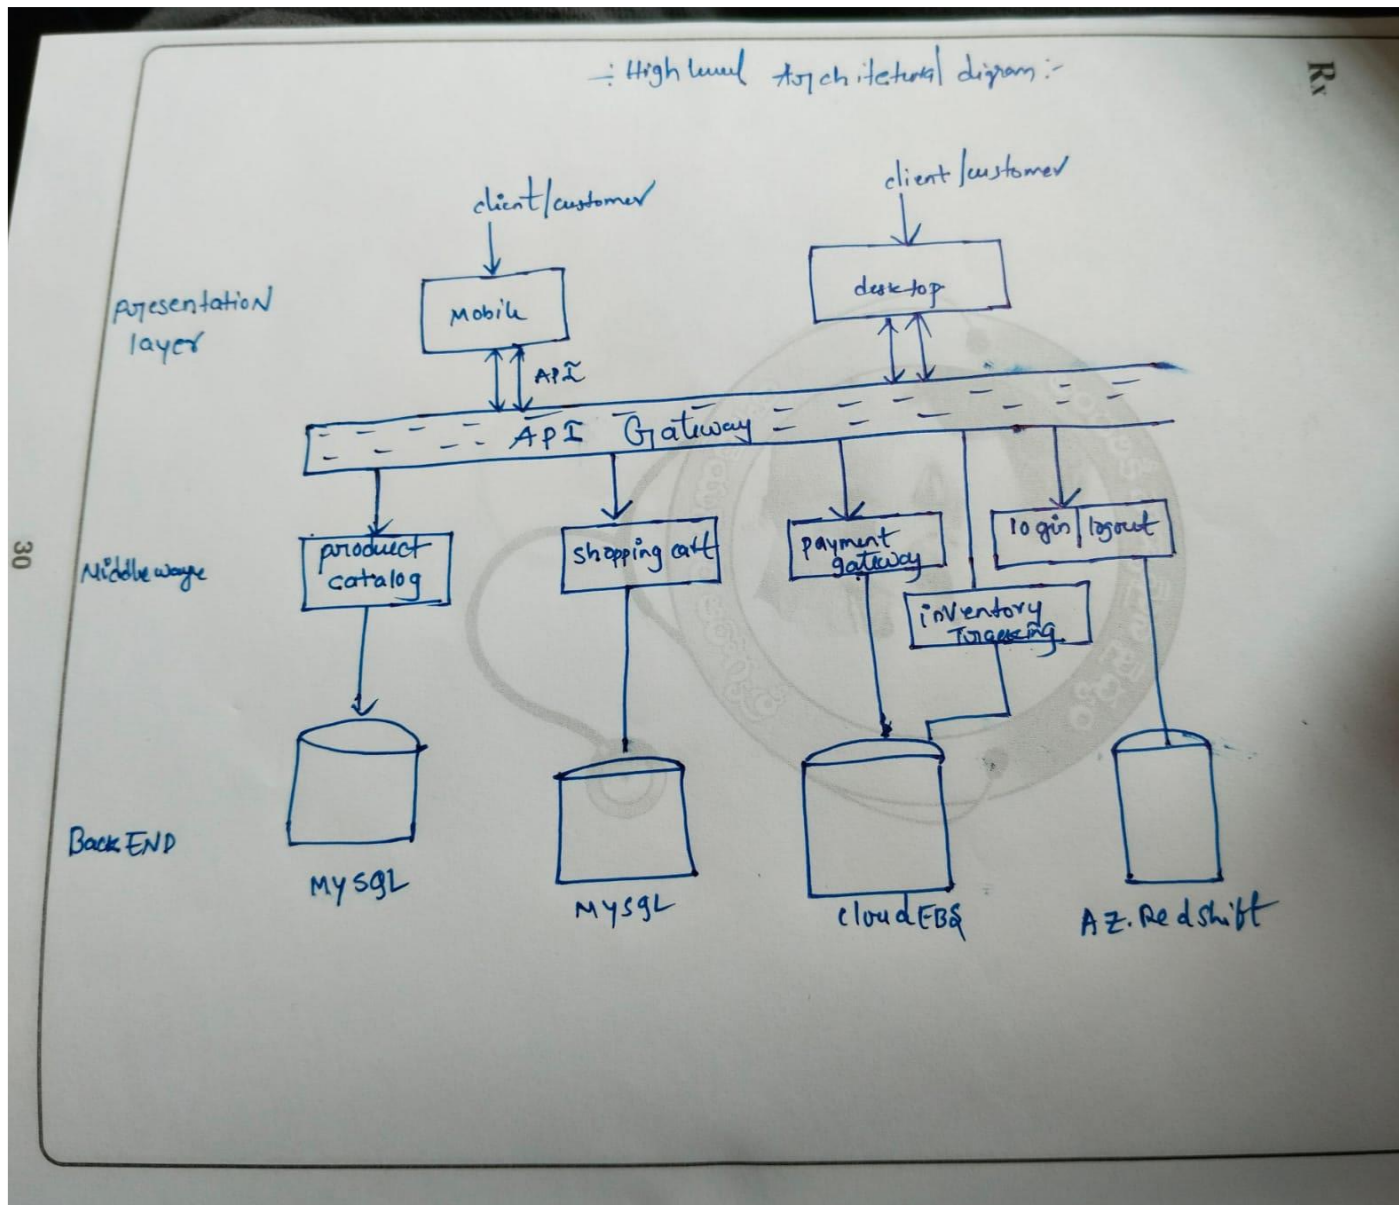 -: High level Architetural digram :-
Rx
client/customer
client/customer
presentation
layer
Mobile
desktop
API
API Gateway
30
Middleware
product
catalog
shopping cart
payment
gateway
login/logout
inventory
BackEND
MySQL
MySQL
cloud EBS
AZ.Redshift